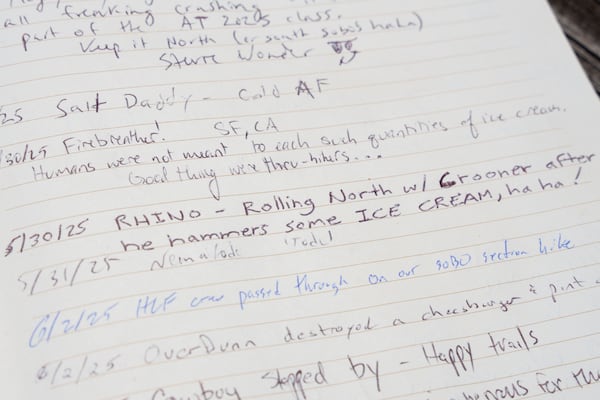 all freaking crashing
part of the AT 2025 class.
Keep it North (or south sobos haha)
Stevie Wonder
25 Salt Daddy - Cold AF
30/25 Firebreather! SF, CA
Humans were not meant to each such quantities of ice cream.
Good thing we're thru-hikers...
5/30/25 RHINO - Rolling North w/ Crooner after
he hammers some ICE CREAM, ha ha!
5/31/25
6/2/25 HCF crew passed through on our SOBO section hike
6/2/25 OverDunn destroyed a cheesburger & pint
Cowboy stopped by - Happy trails
for the